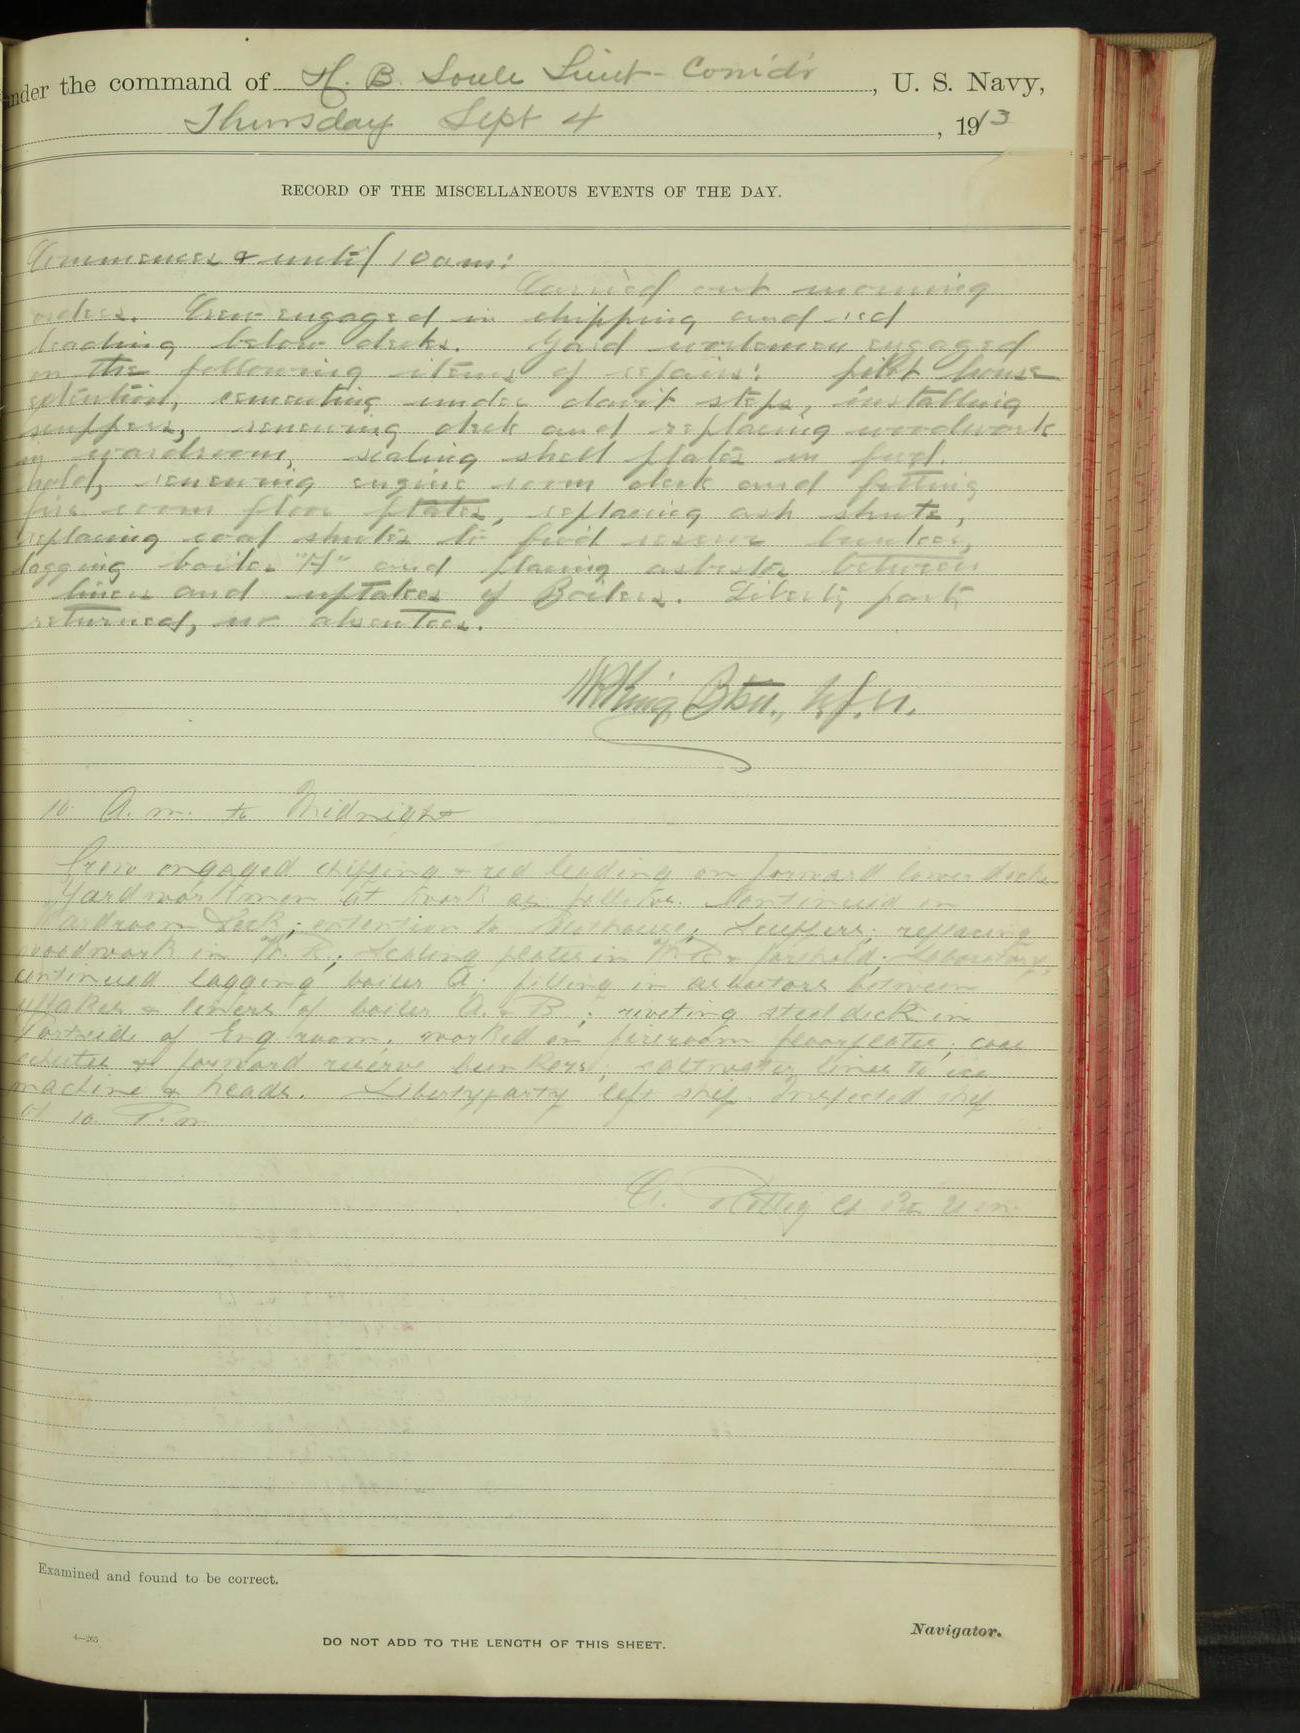 under the command of H. B. Soule Lieut-Comd'r, U. S. Navy,
Thursday Sept 4, 1913
RECORD OF THE MISCELLANEOUS EVENTS OF THE DAY.
Commences & until 10 am:
Carried out morning
orders. Crew engaged in chipping and red
leading below decks. Yard workmen engaged
on the following items of repairs: pilot house
extention, cementing under davit steps, installing
scuppers, renewing deck and replacing woodwork
in wardroom, scaling shell plates in fwd.
hold, renewing engine room deck and fitting
fire room floor plates, replacing ash shute,
replacing coal shutes to fwd reserve bunker,
lagging boiler "A" and placing asbestos between
liners and uptakes of Boilers. Liberty party
returned, no absentees.
W R King, Btsn., U.S.N.
10 A. m. to Midnight
Crew engaged chipping & red leading on forward lower deck.
Yard workmen at work as follows. Continued on
Wardroom Deck; extention to Pilothouse; Scuppers; replacing
woodwork in W. R.; Scaling plates in W.R. & forehold; Laboratory,
continued lagging boiler A; filling in asbestors between
uptakes & liners of boiler A. & B.; riveting steel deck in
Portside of Eng room; worked on fireroom floorplates; coal
chutes to forward reserve bunkers; saltwater lines to ice
machine & heads. Libertyparty left ship. Inspected ship
at 10 P. m.
Examined and found to be correct.
4—265
DO NOT ADD TO THE LENGTH OF THIS SHEET.
Navigator.